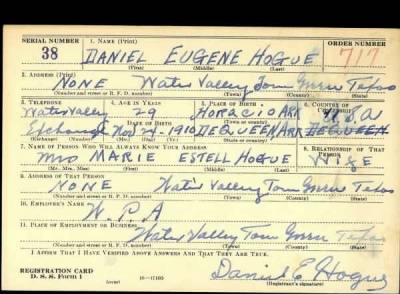 SERIAL NUMBER 1. NAME (Print) ORDER NUMBER
38 DANIEL EUGENE HOGUE 717
(First) (Middle) (Last)
2. ADDRESS (Print)
NONE Water Valley Tom Green Texas
(Number and street or R. F. D. number) (Town) (County) (State)
3. TELEPHONE 4. AGE IN YEARS 5. PLACE OF BIRTH 6. COUNTRY OF CITIZENSHIP
Water Valley 29 HORATIO ARK U.S.A
DATE OF BIRTH
Exchange Nov 24-1910 DEQUEEN ARK DEQUEEN
7. NAME OF PERSON WHO WILL ALWAYS KNOW YOUR ADDRESS 8. RELATIONSHIP OF THAT PERSON
Mrs MARIE ESTELL HOGUE Wife
(Mr., Mrs., Miss) (First) (Middle) (Last)
9. ADDRESS OF THAT PERSON
NONE Water Valley Tom Green Texas
(Number and street or R. F. D. number) (Town) (County) (State)
10. EMPLOYER'S NAME
W.P.A
11. PLACE OF EMPLOYMENT OR BUSINESS
Water Valley Tom Green Texas
(Number and street or R. F. D. number) (Town) (County) (State)
I AFFIRM THAT I HAVE VERIFIED ABOVE ANSWERS AND THAT THEY ARE TRUE.
REGISTRATION CARD
D. S. S. Form 1 (over) 16—17105 Daniel E Hogue
(Registrant's signature)